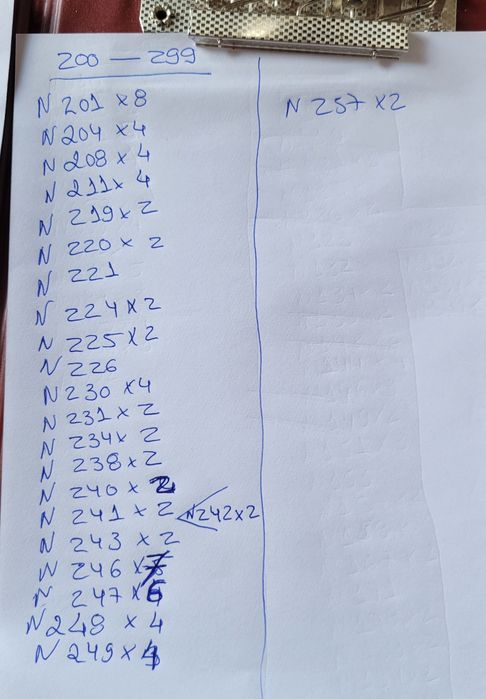 200 — 299
N 201 x 8
N 204 x 4
N 208 x 4
N 211 x 4
N 219 x 2
N 220 x 2
N 221
N 224 x 2
N 225 x 2
N 226
N 230 x 4
N 231 x 2
N 234 x 2
N 238 x 2
N 240 x 2
N 241 x 2
N 242 x 2
N 243 x 2
N 246 x 7
N 247 x 6
N 248 x 4
N 249 x 4
N 257 x 2